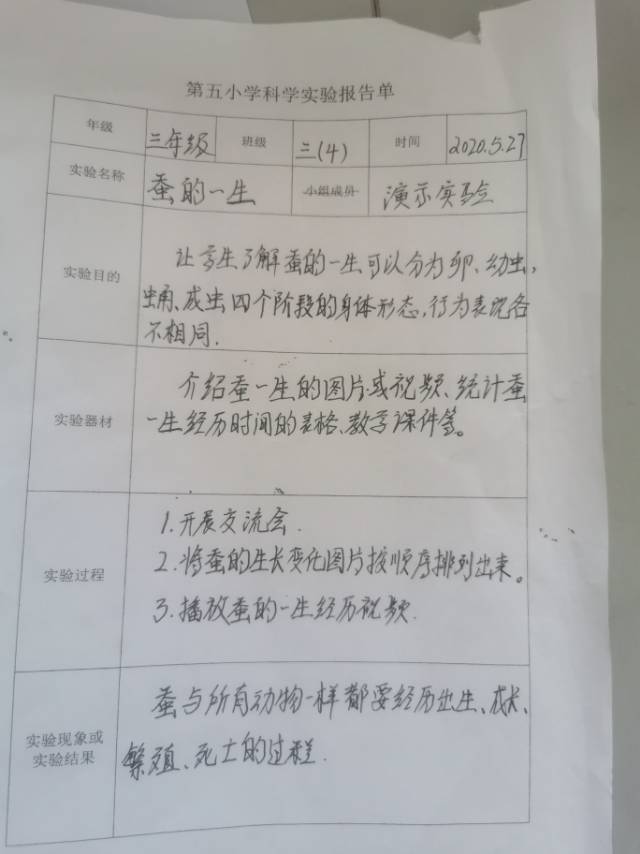 第五小学科学实验报告单
年级 三年级 班级 三(4) 时间 2020.5.27
实验名称 蚕的一生 小组成员 演示实验
实验目的
让学生了解蚕的一生可以分为卵、幼虫,
蛹、成虫四个阶段的身体形态,行为表现各
不相同.
实验器材
介绍蚕一生的图片或视频、统计蚕
一生经历时间的表格、教学课件等。
实验过程
1.开展交流会.
2.将蚕的生长变化图片按顺序排列出来。
3.播放蚕的一生经历视频.
实验现象或
实验结果
蚕与所有动物一样都要经历出生、成长、
繁殖、死亡的过程.